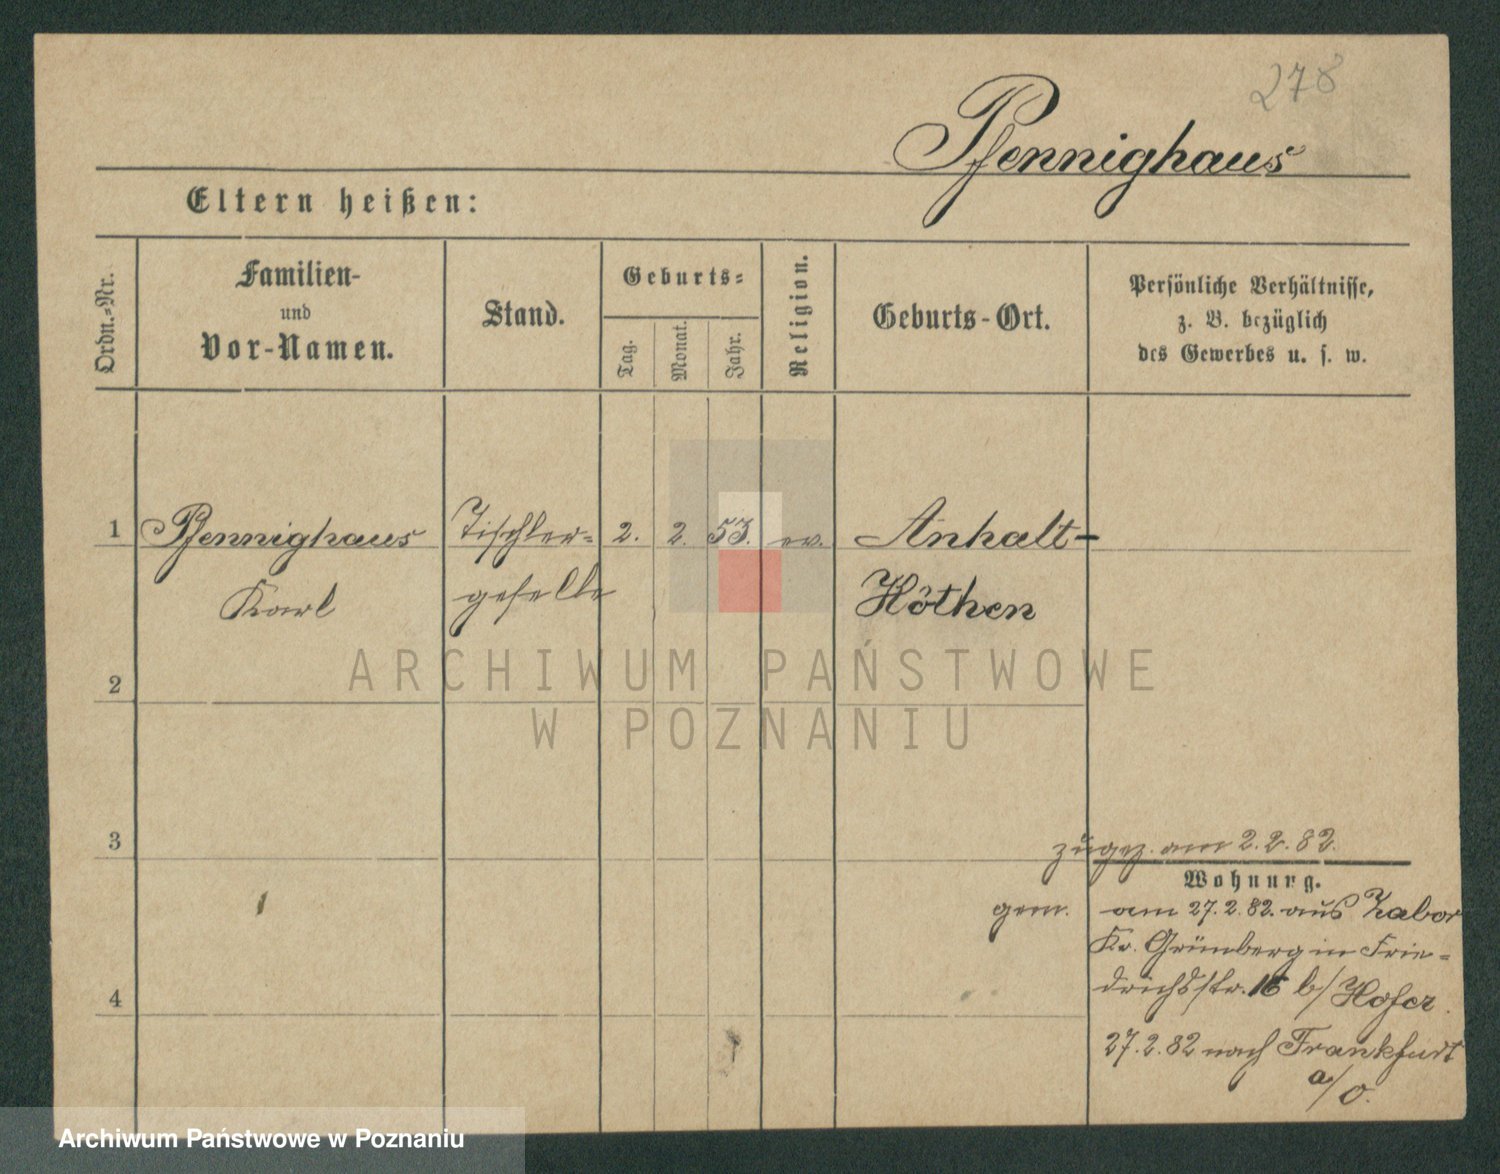 278
Pfennighaus
Eltern heißen:
Ordn.=Nr.
Familien-
und
Vor-Namen.
Stand.
Geburts=
Tag.
Monat.
Jahr.
Religion.
Geburts-Ort.
Persönliche Verhältnisse,
z. B. bezüglich
des Gewerbes u. s. w.
1 Pfennighaus Tischler= 2. 2. 53. ev. Anhalt-
Karl geselle Köthen
2
3
zugez. am 2.2.82.
Wohnung.
gem. am 27.2.82. aus Zabor
Kr. Grünberg in Frie=
drichsstr. 16 b/ Hofer.
4
27.2.82 nach Frankfurt
a/O.
ARCHIWUM PAŃSTWOWE
W POZNANIU
Archiwum Państwowe w Poznaniu